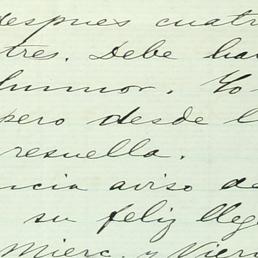 despues cuatr
tres. Debe ha
humor. Yo
pero desde l
resuella.
ncia aviso de
su feliz lleg
Mierc. y Vier